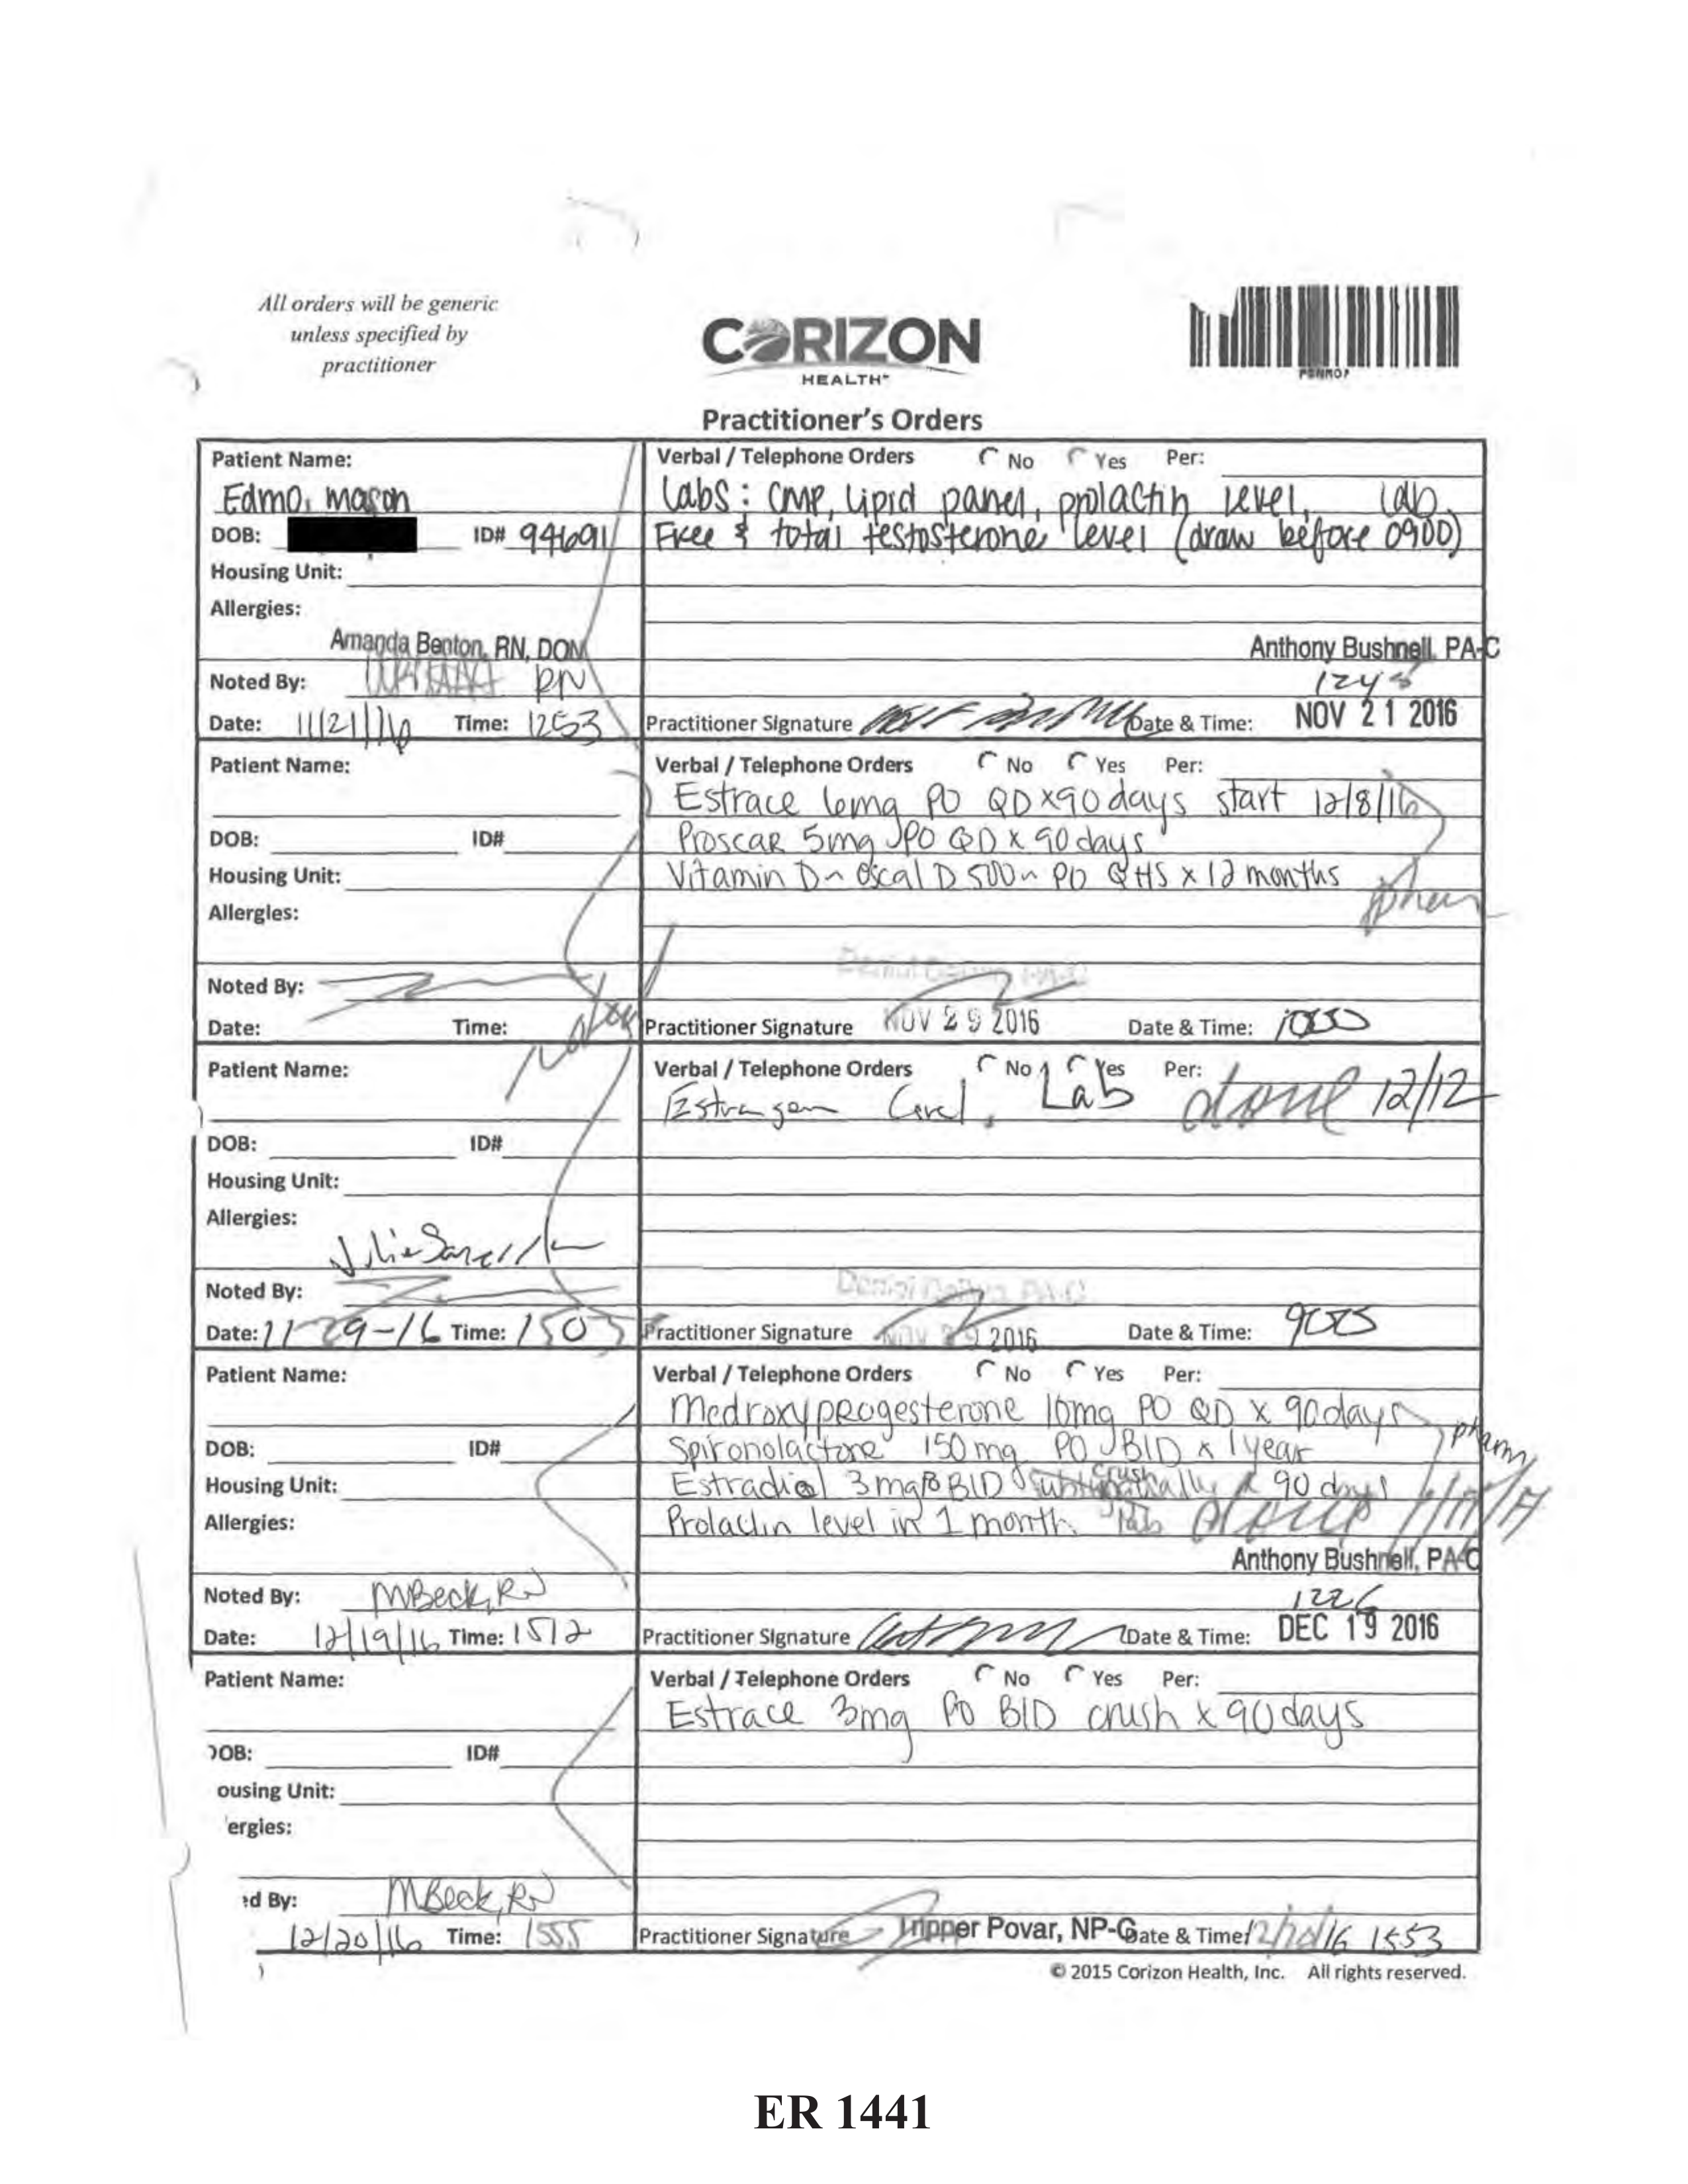 All orders will be generic
unless specified by
practitioner
CORIZON
HEALTH
Practitioner's Orders
Patient Name:
Edmo, mason
DOB: ID# 94691
Housing Unit:
Allergies:
Amanda Benton, RN, DON
Noted By: RN
Date: 11/21/16 Time: 1253
Verbal / Telephone Orders No Yes Per:
Labs: CMP, lipid panel, prolactin level, lab
Free & total testosterone level (draw before 0900)
Anthony Bushnell, PA-C
Practitioner Signature Date & Time: NOV 21 2016
Patient Name:
DOB: ID#
Housing Unit:
Allergies:
Noted By:
Date: Time:
Verbal / Telephone Orders No Yes Per:
Estrace 6mg PO QD x 90 days start 12/8/16
Proscar 5mg PO QD x 90 days
Vitamin D~ Oscal D 500~ PO QHS x 12 months
Practitioner Signature NOV 29 2016 Date & Time: 1000
Patient Name:
DOB: ID#
Housing Unit:
Allergies:
Noted By:
Date: 11-29-16 Time: 1503
Verbal / Telephone Orders No Yes Per:
Estrogen Level, Lab done 12/12
Practitioner Signature NOV 29 2016 Date & Time:
Patient Name:
DOB: ID#
Housing Unit:
Allergies:
Noted By: MBeck, RN
Date: 12/19/16 Time: 1512
Verbal / Telephone Orders No Yes Per:
Medroxyprogesterone 10mg PO QD x 90 days
pharm
Spironolactone 150mg PO BID x 1 year
Estradiol 3mg BID crush x 90 days
Prolactin level in 1 month. lab done 1/17/17
Anthony Bushnell, PA-C
1226
Practitioner Signature Date & Time: DEC 19 2016
Patient Name:
DOB: ID#
ousing Unit:
ergies:
ed By: MBeck, RN
12/20/16 Time: 1555
Verbal / Telephone Orders No Yes Per:
Estrace 3mg PO BID crush x 90 days
Practitioner Signature Tripper Povar, NP-C Date & Time: 12/20/16 1553
© 2015 Corizon Health, Inc. All rights reserved.
ER 1441